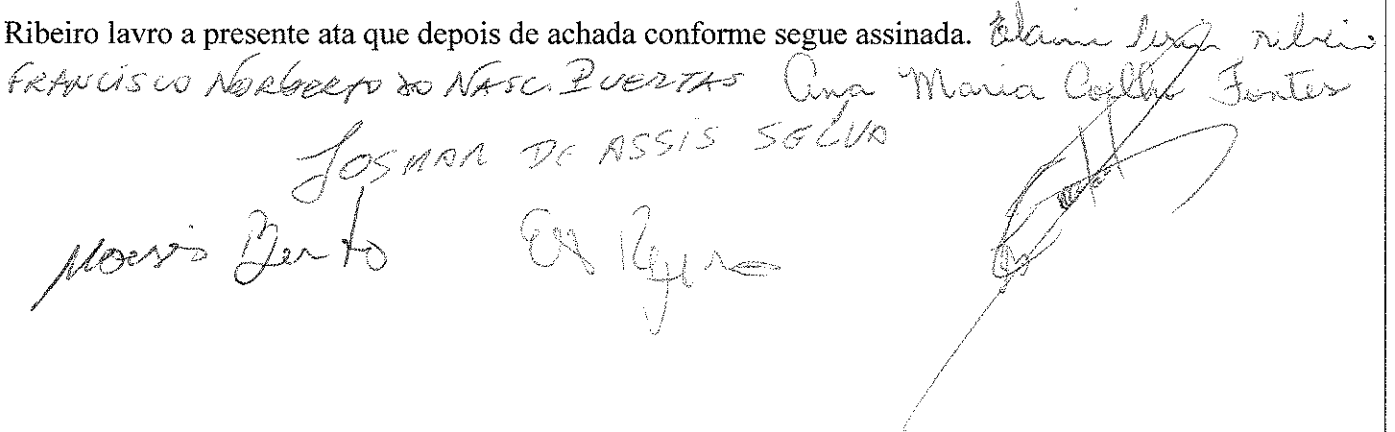 Ribeiro lavro a presente ata que depois de achada conforme segue assinada. Elaine ribeiro
FRANCISCO NORBERTO DO NASC. PUERTAS Ana Maria Coelho Fontes
JOSMAR DE ASSIS SELVA
Moises Bento